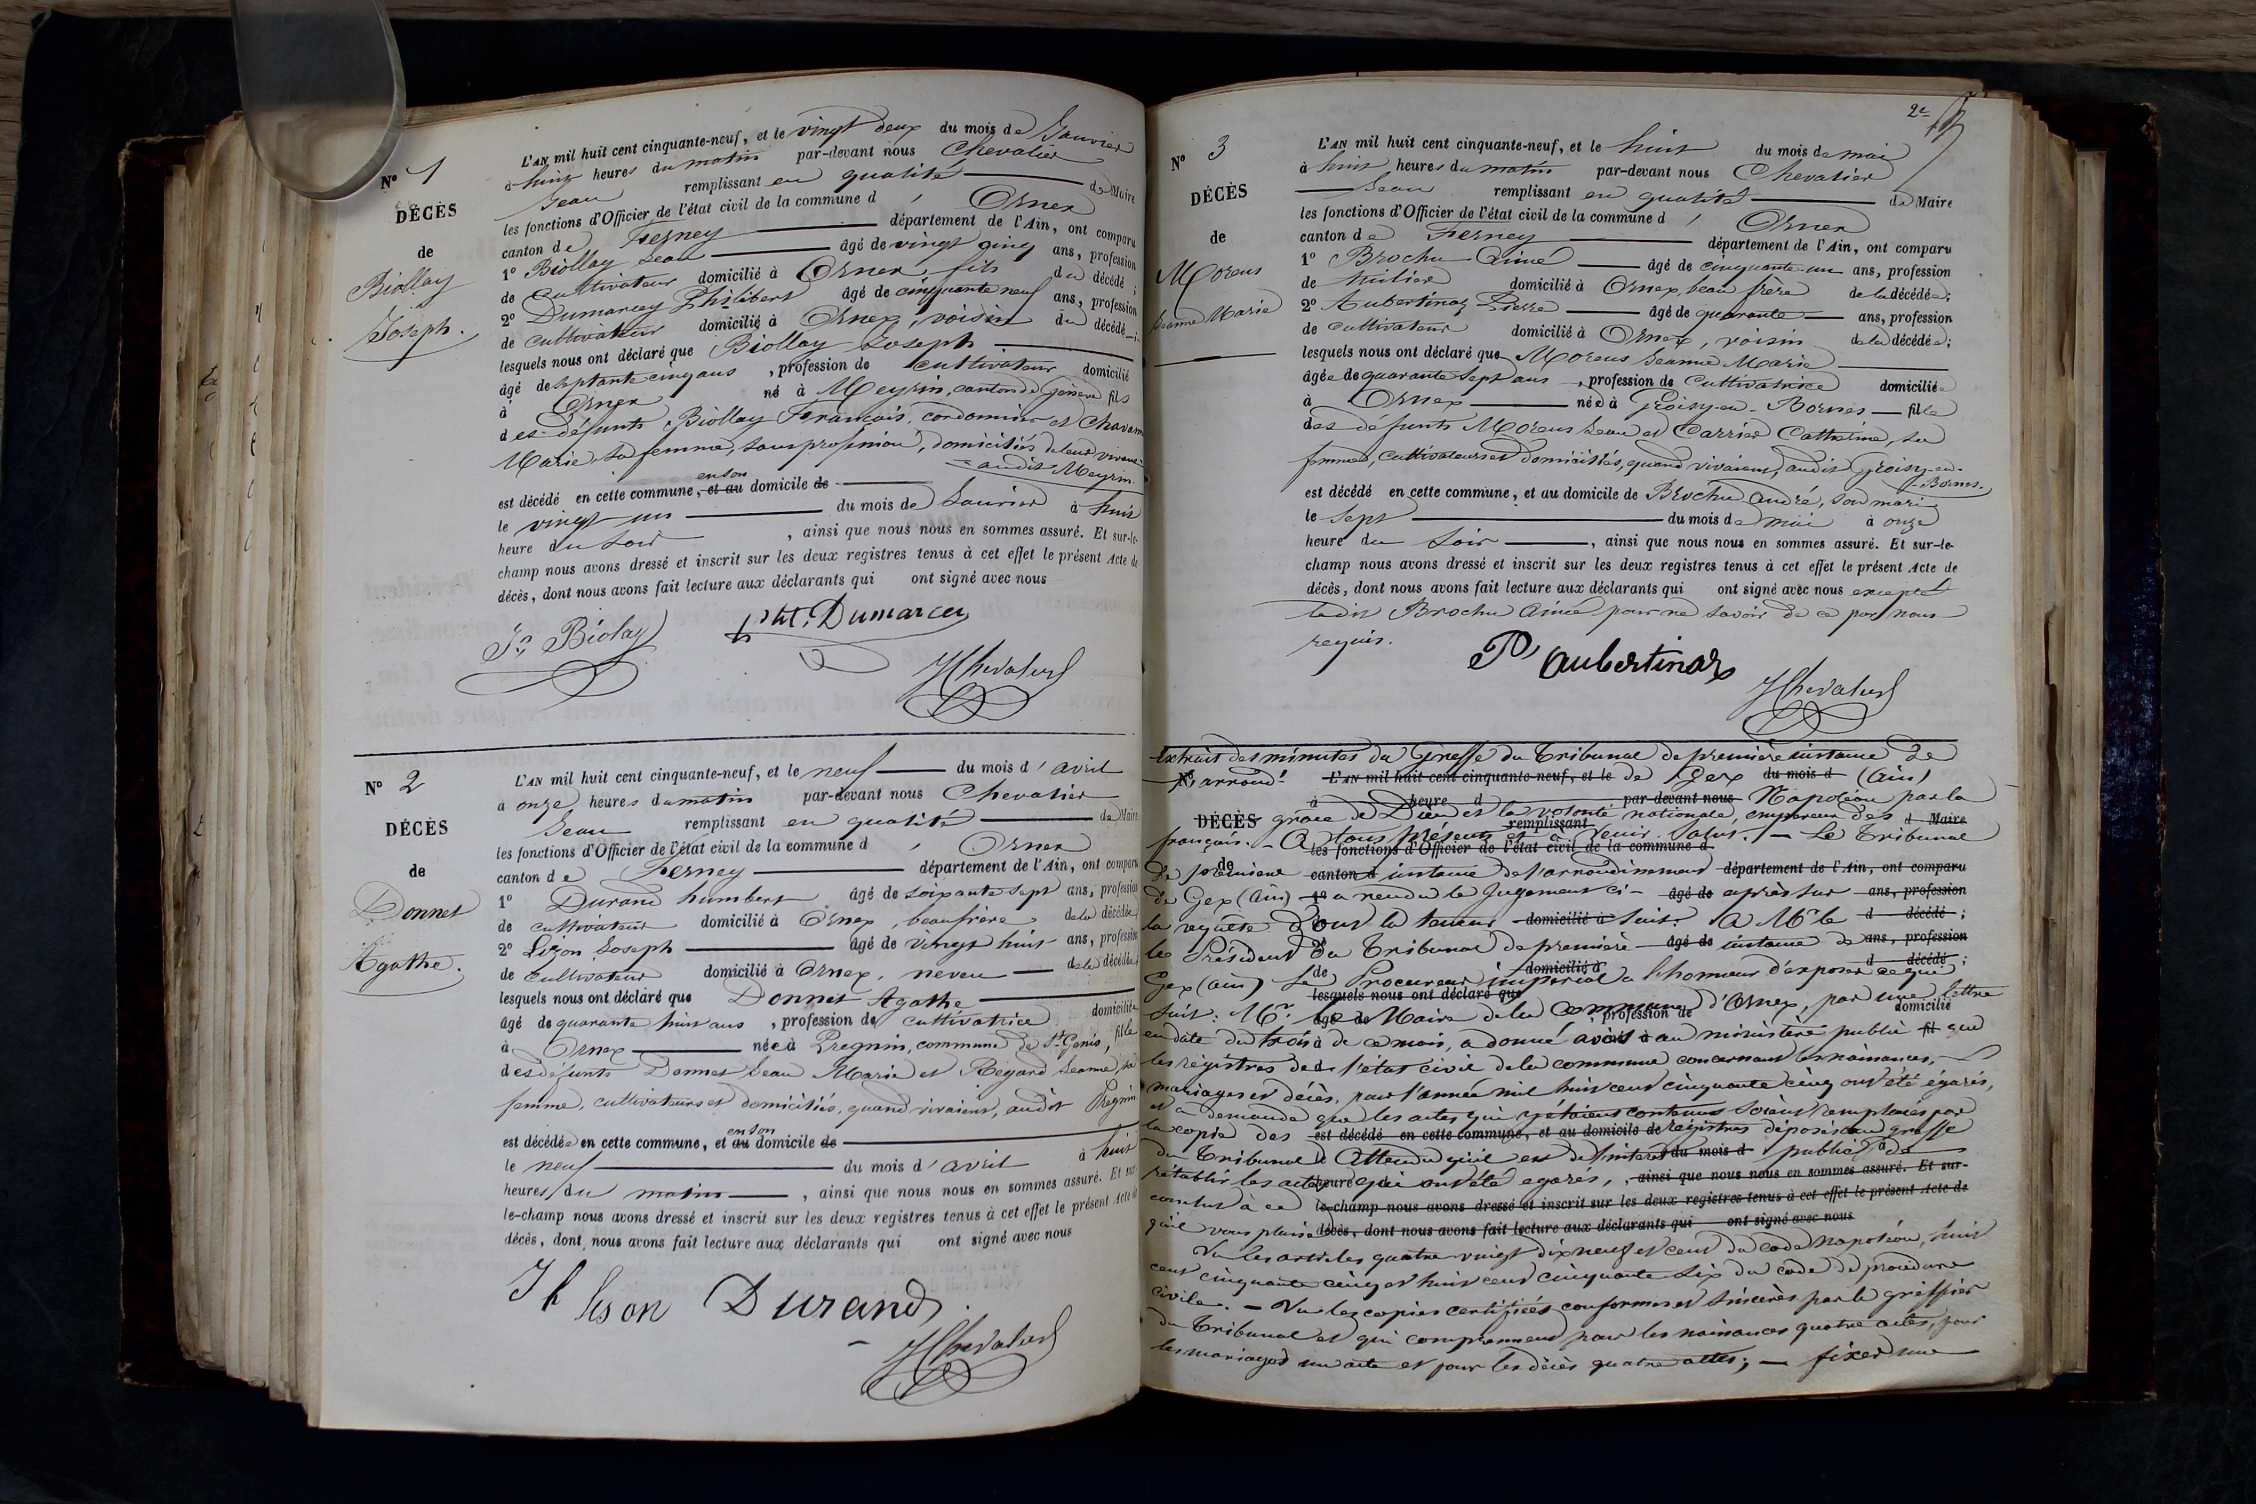 N° 1
DÉCÈS
de
Biollay
Joseph.
L'AN mil huit cent cinquante-neuf, et le vingt deux du mois de Janvier
à huit heures du matin par-devant nous Chevalier
Jean remplissant en qualité de Maire
les fonctions d'Officier de l'état civil de la commune d' Ornex
canton de Ferney département de l'Ain, ont comparu
1° Biollay Jean âgé de vingt cinq ans, profession
de cultivateur domicilié à Ornex, fils du décédé ;
2° Dumarcey Philibert âgé de cinquante neuf ans, profession
de cultivateur domicilié à Ornex, voisin du décédé ;
lesquels nous ont déclaré que Biollay Joseph
âgé de septante cinq ans, profession de cultivateur domicilié
à Ornex né à Meyrin, canton de Genève fils
des défunts Biollay François, cordonnier et Chavanne
Marie, sa femme, sans profession, domiciliés de leur vivant
audit Meyrin.
est décédé en cette commune, et au en son domicile de
le vingt un du mois de Janvier à huit
heure du soir, ainsi que nous nous en sommes assuré. Et sur-le-
champ nous avons dressé et inscrit sur les deux registres tenus à cet effet le présent Acte de
décès, dont nous avons fait lecture aux déclarants qui ont signé avec nous
Jn Biolay Pht. Dumarcey
JChevalier
N° 2
DÉCÈS
de
Donnet
Agathe.
L'AN mil huit cent cinquante-neuf, et le neuf du mois d'avril
à onze heures du matin par-devant nous Chevalier
Jean remplissant en qualité de Maire
les fonctions d'Officier de l'état civil de la commune d' Ornex
canton de Ferney département de l'Ain, ont comparu
1° Durand humbert âgé de soixante sept ans, profession
de cultivateur domicilié à Ornex, beaufrère de la décédée
2° Lizon Joseph âgé de vingt huit ans, profession
de cultivateur domicilié à Ornex, neveu de la décédée
lesquels nous ont déclaré que Donnet Agathe
âgé de quarante huit ans, profession de cultivatrice domiciliée
à Ornex née à Pregnin, commune de St Genis, fille
des défunts Donnet Jean Marie et Regard Jeanne, sa
femme, cultivateurs et domiciliés, quand vivaient, audit Pregnin
est décédée en cette commune, et au en son domicile de
le neuf du mois d'avril à huit
heures du matin, ainsi que nous nous en sommes assuré. Et sur-
le-champ nous avons dressé et inscrit sur les deux registres tenus à cet effet le présent Acte de
décès, dont nous avons fait lecture aux déclarants qui ont signé avec nous
Durand
JChevalier
2e
N° 3
DÉCÈS
de
Morens
Jeanne Marie
L'AN mil huit cent cinquante-neuf, et le huit du mois de mai
à huit heures du matin par-devant nous Chevalier
Jean remplissant en qualité de Maire
les fonctions d'Officier de l'état civil de la commune d' Ornex
canton de Ferney département de l'Ain, ont comparu
1° Brochu Aimé âgé de cinquante un ans, profession
de domicilié à Ornex, beau frère de la décédée ;
2° Aubertinaz Pierre âgé de quarante ans, profession
de cultivateur domicilié à Ornex, voisin de la décédée ;
lesquels nous ont déclaré que Morens Jeanne Marie
âgée de quarante sept ans, profession de cultivatrice domiciliée
à Ornex née à Groisy-en-Bornes fille
des défunts Morens Jean et Carrier Catherine, sa
femme, cultivateurs et domiciliés, quand vivaient, audit Groisy-en-
Bornes.
est décédé en cette commune, et au domicile de Brochu André, son mari
le sept du mois de mai à onze
heure du soir, ainsi que nous nous en sommes assuré. Et sur-le-
champ nous avons dressé et inscrit sur les deux registres tenus à cet effet le présent Acte de
décès, dont nous avons fait lecture aux déclarants qui ont signé avec nous excepté
ledit Brochu Aimé pour ne savoir de ce par nous
requis.
P Aubertinaz
JChevalier
Extrait des minutes du Greffe du Tribunal de première instance de
N° l'arrondt L'AN mil huit cent cinquante-neuf, et le de Gex du mois d (Ain)
à heure d par-devant nous Napoléon par la
DÉCÈS grace de Dieu et la volonté nationale, empereur des d Maire
remplissant
français. - A tous présents et à venir. Salut. - Le Tribunal
les fonctions d'Officier de l'état civil de la commune d
de de première canton d instance de l'arrondissement département de l'Ain, ont comparu
de Gex (Ain) 1° a rendu le Jugement ci- âgé de après sur ans, profession
la requête de dont la teneur domicilié à suit. A Mr le d décédé ;
le Président 2° du Tribunal de première âgé de instance de ans, profession
Gex (Ain) de Le Procureur impérial domicilié à a l'honneur d'exposer ce qui d décédé ;
lesquels nous ont déclaré que
suit : Mr âgé de le Maire de la commune profession de d'Ornex, par une lettre domicilié
en date du trois à de ce mois, a donné avis né à au ministère public fil que
les régistres de d l'état civil de la commune concernant les naissances,
mariages et décès, pour l'année mil huit cent cinquante cinq ont été égarés,
et a demandé que les actes qui y étaient contenus soient remplacés par
la copie des est décédé en cette commune, et au domicile de régistres déposés au greffe
du Tribunal le Attendu qu'il est de l'intérêt du mois d public à de
rétablir les actes heure qui ont été égarés, , ainsi que nous nous en sommes assuré. Et sur-
conclut à ce le-champ nous avons dressé et inscrit sur les deux registres tenus à cet effet le présent Acte de
qu'il vous plaise décès, dont nous avons fait lecture aux déclarants qui ont signé avec nous
Vu les articles quatre vingt dix neuf et cent du code Napoléon, huit
cent cinquante cinq et huit cent cinquante six du code de procédure
civile. - Vu les copies certifiées conformes et sincères par le greffier
du Tribunal et qui comprennent pour les naissances quatre actes, pour
les mariages un acte et pour les décès quatre actes; - fixer une